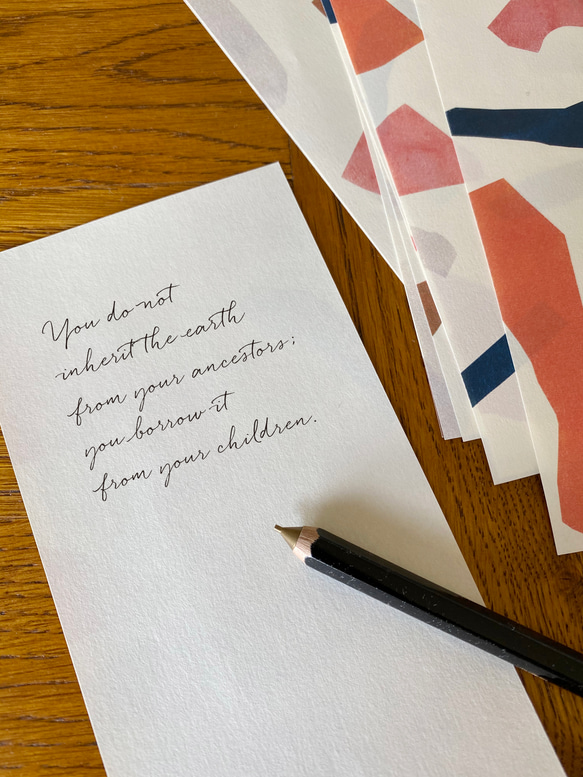 You do not
inherit the earth
from your ancestors;
you borrow it
from your children.